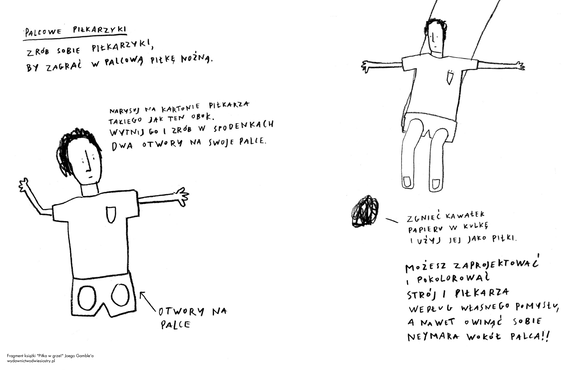 PALCOWE PIŁKARZYKI
ZRÓB SOBIE PIŁKARZYKI,
BY ZAGRAĆ W PALCOWĄ PIŁKĘ NOŻNĄ.
NARYSUJ NA KARTONIE PIŁKARZA
TAKIEGO JAK TEN OBOK.
WYTNIJ GO I ZRÓB W SPODENKACH
DWA OTWORY NA SWOJE PALCE.
OTWORY NA
PALCE
Fragment książki "Piłka w grze!" Joego Gamble'a
wydawnictwodwiesiostry.pl
ZGNIEĆ KAWAŁEK
PAPIERU W KULKĘ
I UŻYJ JEJ JAKO PIŁKI.
MOŻESZ ZAPROJEKTOWAĆ
I POKOLOROWAĆ
STRÓJ I PIŁKARZA
WEDŁUG WŁASNEGO POMYSŁU,
A NAWET OWINĄĆ SOBIE
NEYMARA WOKÓŁ PALCA!!